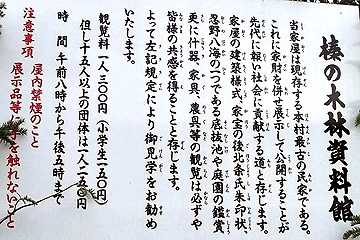 榛の木林資料館
当家屋は現存する本村最古の民家である。
これに家財を併せ展示して公開することが
先代に報い社会に貢献する道と存じます。
家屋の建築様式、家宝の後北条氏朱印状
忍野八海の一つである底抜池や庭園の鑑賞
更に什器、家具、農具等の観覧は必ずや
皆様の共感を得ることと存じます。
よって左記規定により御見学をお勧め
いたします。
観覧料 一人 三〇〇円 (小学生一五〇円)
但し十五人以上の団体は一人二五〇円
時 間 午前八時から午後五時まで
注意事項 屋内禁煙のこと
展示品等 手を触れないこと